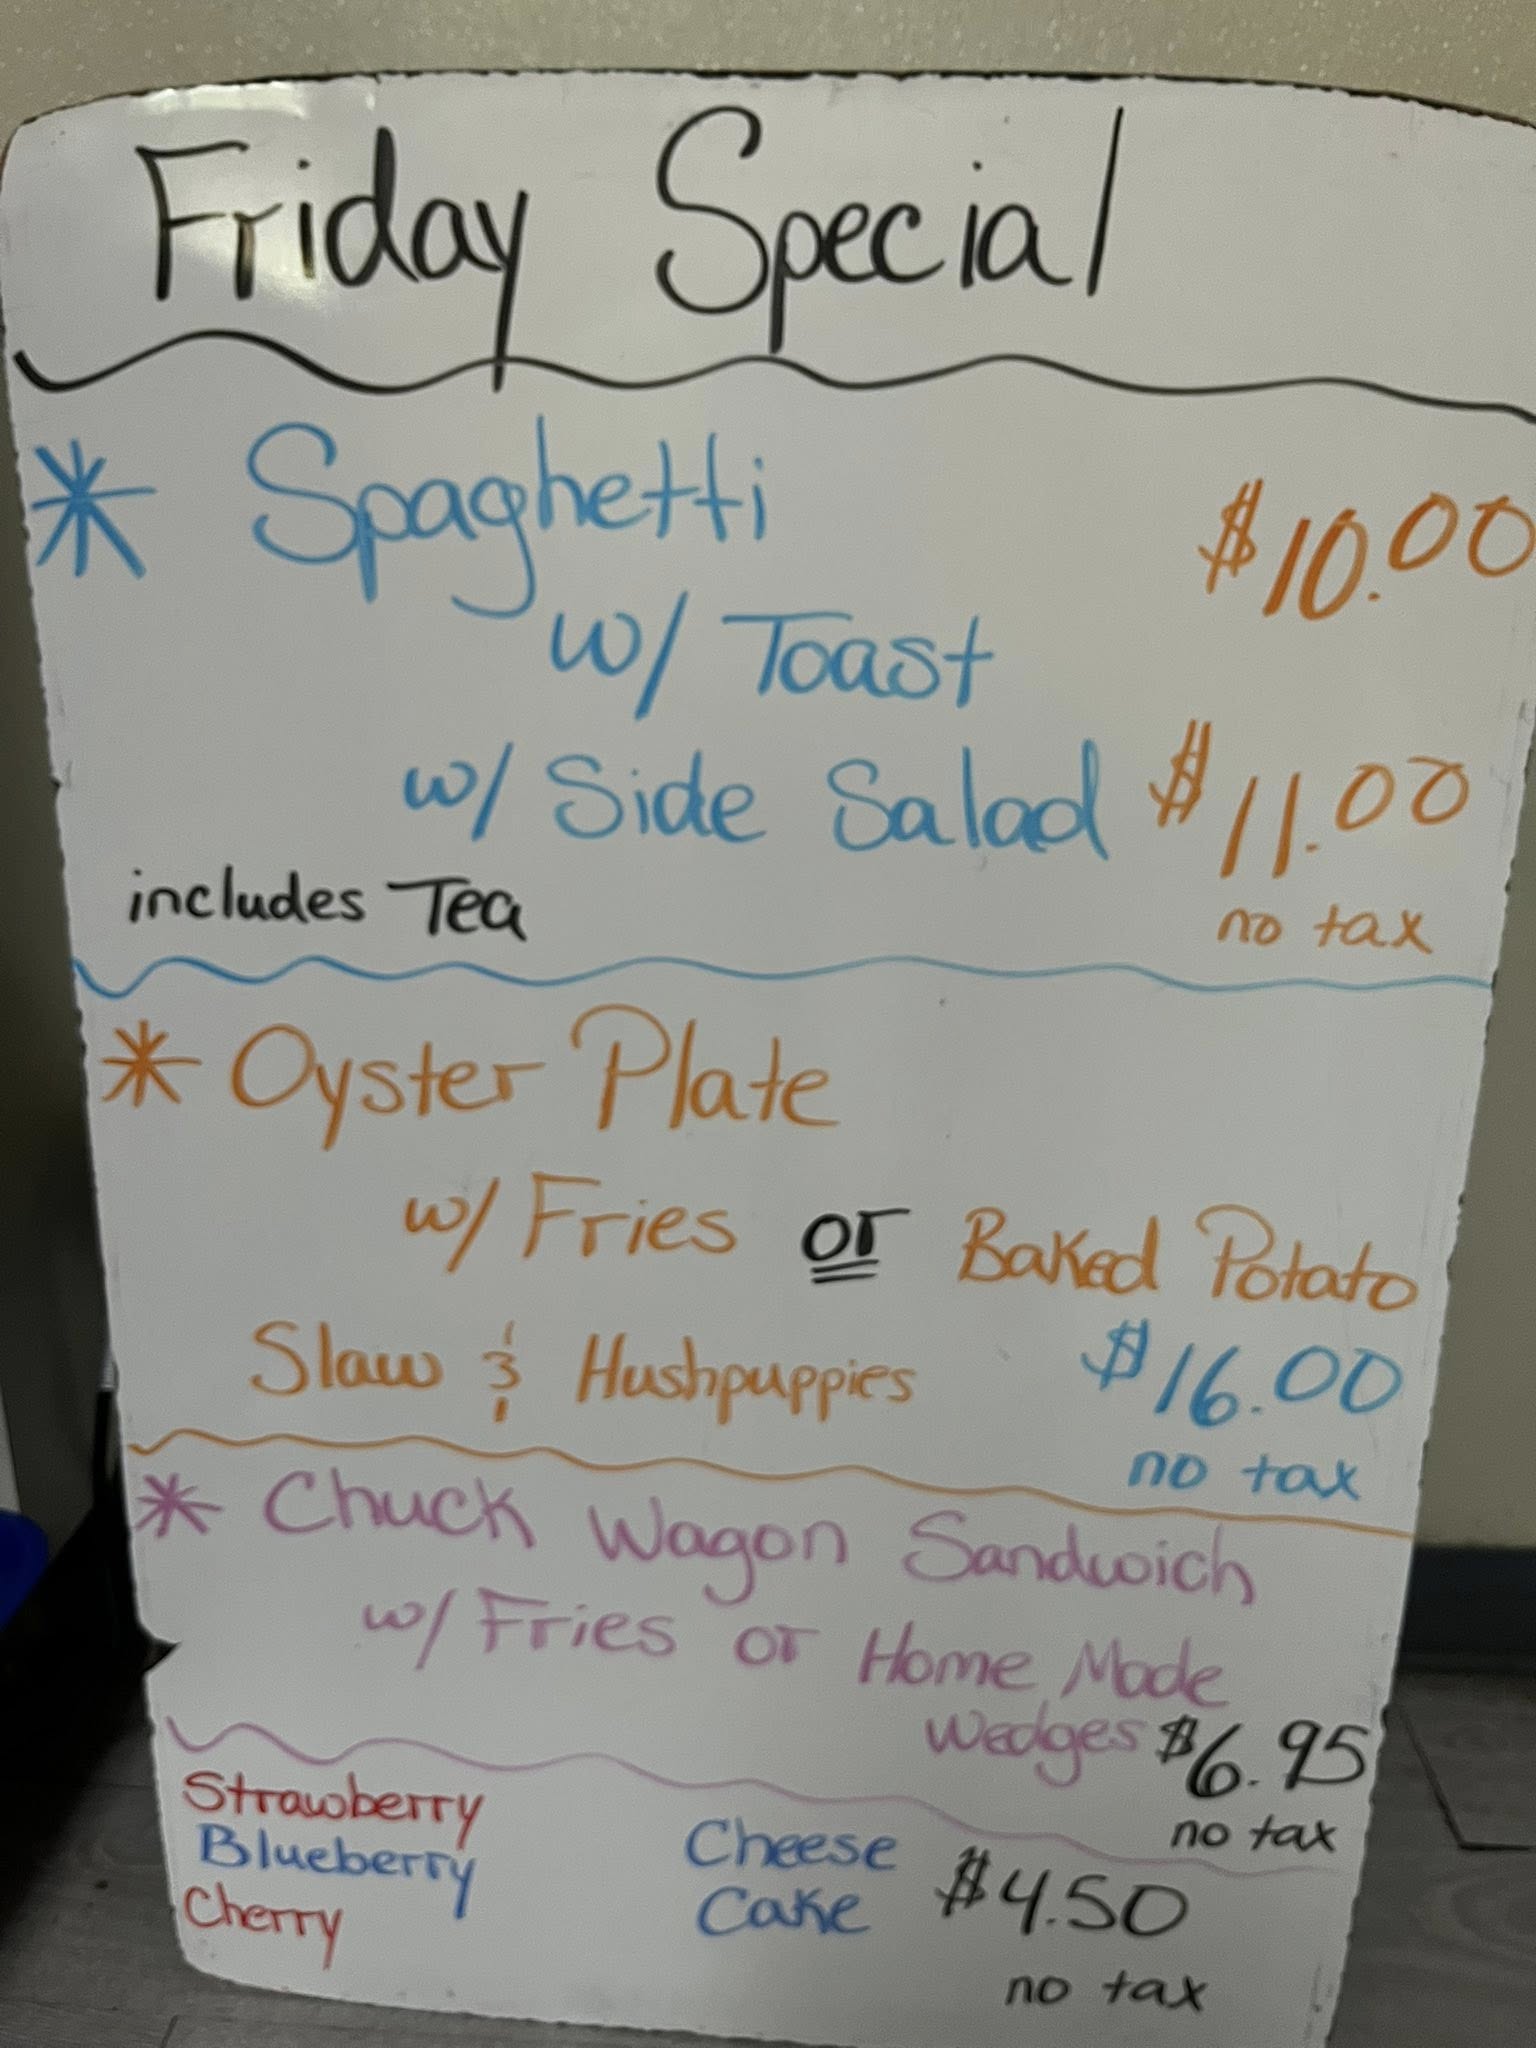 Friday Special
* Spaghetti $10.00
w/ Toast
w/ Side Salad $11.00
includes Tea no tax
* Oyster Plate
w/ Fries or Baked Potato
Slaw & Hushpuppies $16.00
no tax
* Chuck Wagon Sandwich
w/ Fries or Home Made
Wedges $6.95
no tax
Strawberry
Blueberry
Cherry
Cheese
Cake
$4.50
no tax